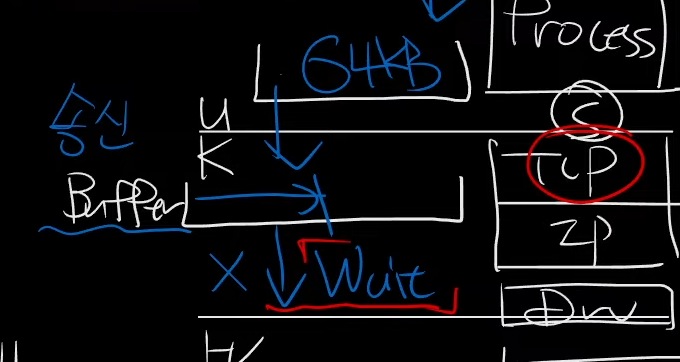 Process
64KB
S
송신
U
K
TCP
Buffer
IP
X Wait
Drv
H/